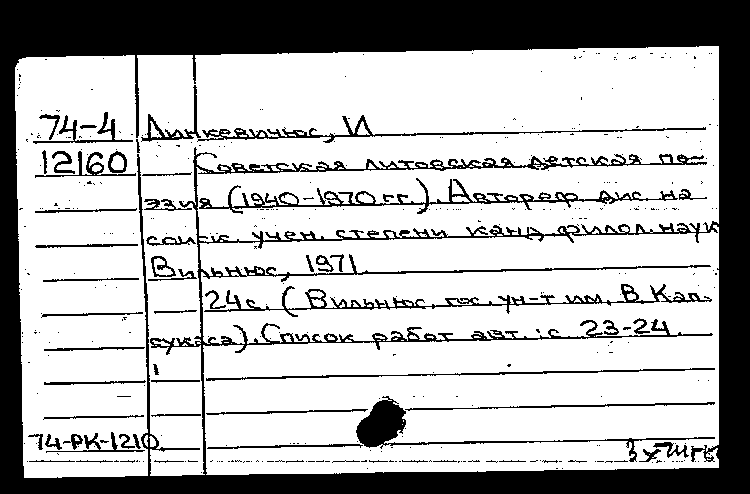 74-4 Линкевичюс, И
12160 Советская литовская детская по-
эзия (1940-1970 гг.). Автореф. дис. на
соиск. учен. степени канд. филол. наук
Вильнюс, 1971.
24 с. (Вильнюс. гос. ун-т им. В. Кап-
сукаса). Список работ авт.: с. 23-24.
74-РК-1210.